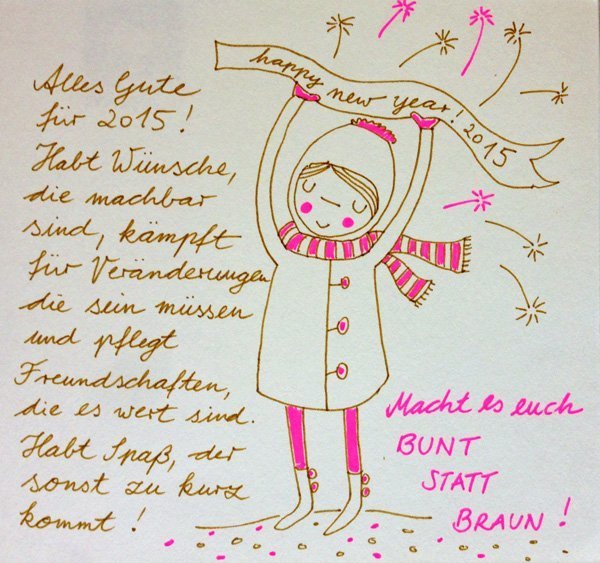 happy new year! 2015
Alles Gute
für 2015!
Habt Wünsche,
die machbar
sind, kämpft
für Veränderungen
die sein müssen
und pflegt
Freundschaften,
die es wert sind.
Habt Spaß, der
sonst zu kurz
kommt!
Macht es euch
BUNT
STATT
BRAUN!